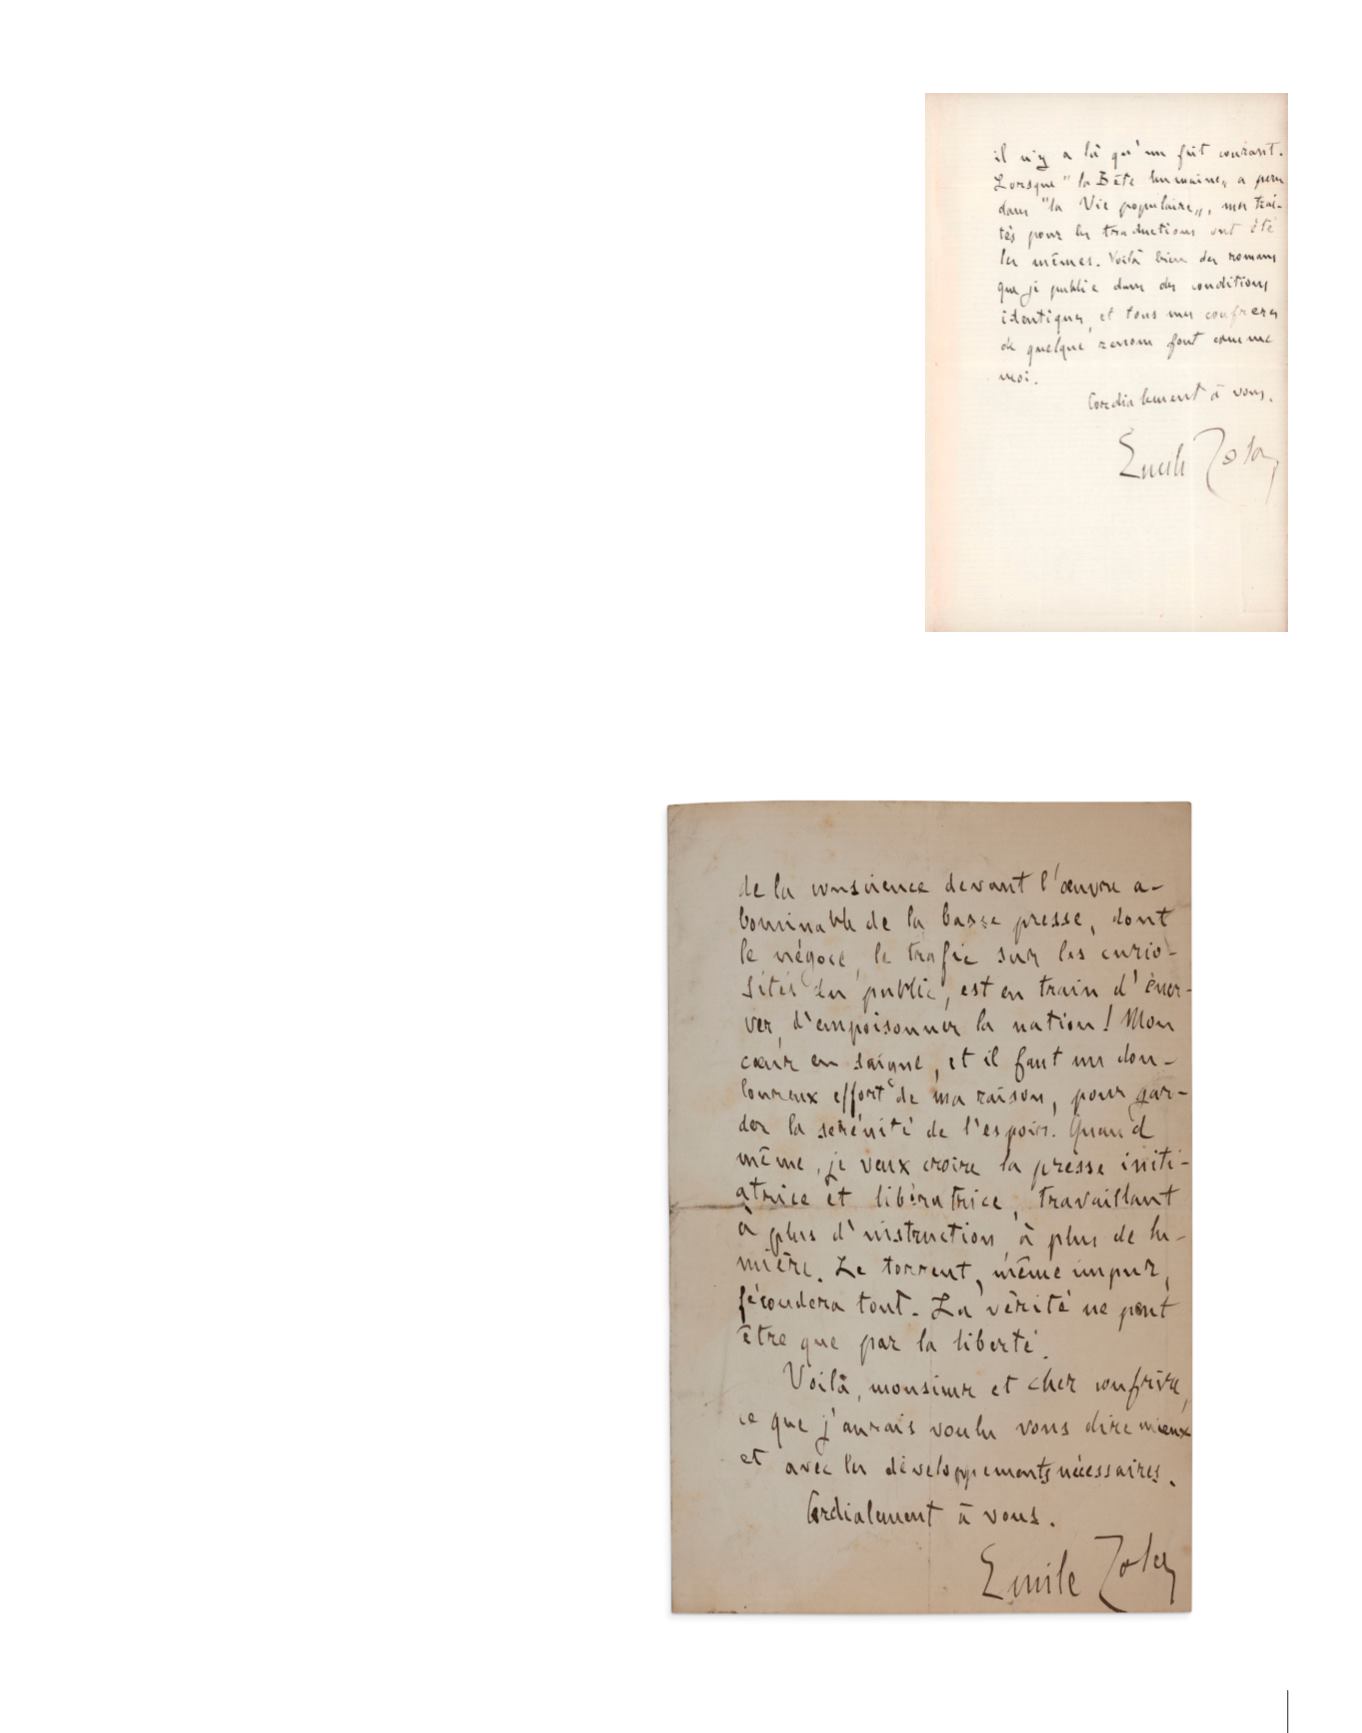 il n'y a là qu'un fait courant.
Lorsque "la Bête humaine" a paru
dans "la Vie populaire", mes trai-
tés pour les traductions ont été
les mêmes. Voilà bien des romans
que je publie dans des conditions
identiques, et tous mes confrères
de quelque renom font comme
moi.
Cordialement à vous.
Emile Zola
de la conscience devant l'œuvre a-
bominable de la basse presse, dont
le négoce, le trafic sur les curio-
sités du public, est en train d'éner-
ver, d'empoisonner la nation! Mon
cœur en saigne, et il faut un dou-
loureux effort de ma raison, pour gar-
der la sérénité de l'espoir. Quand
même, je veux croire la presse initi-
atrice et libératrice, travaillant
à plus d'instruction, à plus de lu-
mière. Le torrent, même impur,
fécondera tout. La vérité ne peut
être que par la liberté.
Voilà, monsieur et cher confrère,
ce que j'aurais voulu vous dire mieux
et avec les développements nécessaires.
Cordialement à vous.
Emile Zola